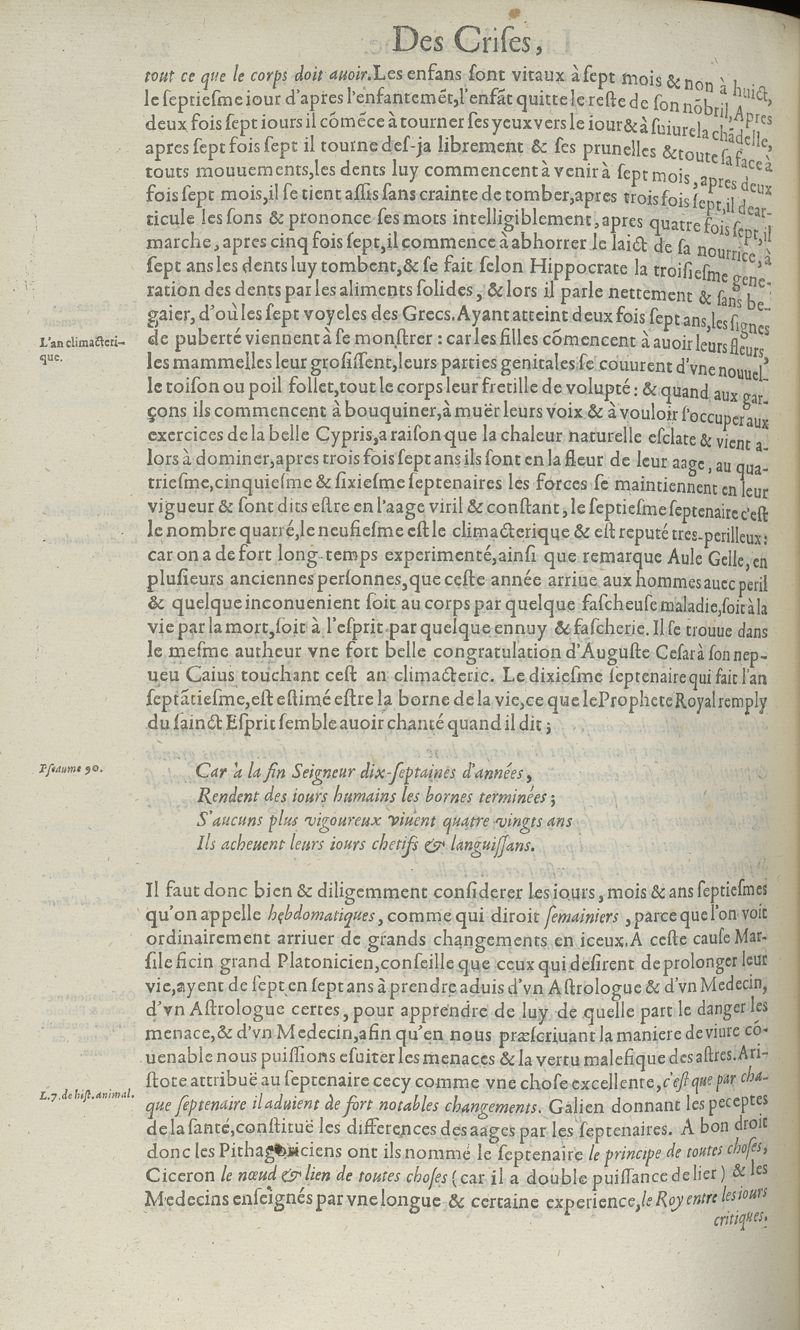 Des Crises,
tout ce que le corps doit auoir. Les enfans ſont vitaux à ſept mois & non à huict,
le ſeptieſme iour d'apres l'enfantemét, l'enfãt quitte le reſte de ſon nõbril, Apres
deux fois ſept iours il cõméce à tourner ſes yeux vers le iour & à ſuiure la chãdelle,
apres ſept fois ſept il tourne deſ-ja librement & ſes prunelles & toute ſa face à
touts mouuements, les dents luy commencent à venir à ſept mois, apres deux
fois ſept mois, il ſe tient aſſis ſans crainte de tomber, apres trois fois ſept, il dear-
ticule les ſons & prononce ſes mots intelligiblement, apres quatre fois ſept, il
marche, apres cinq fois ſept, il commence à abhorrer le laict de ſa nourrice, à
ſept ans les dents luy tombent, & ſe fait ſelon Hippocrate la troiſieſme gene-
ration des dents par les aliments ſolides, & lors il parle nettement & ſans be-
gaier, d'où les ſept voyeles des Grecs. Ayant atteint deux fois ſept ans, les ſignes
L'an climacteri-
que.
de puberté viennent à ſe monſtrer : car les filles cõmencent à auoir leurs fleurs,
les mammelles leur groſiſſent, leurs parties genitales ſe couurent d'vne nouuel-
le toiſon ou poil follet, tout le corps leur fretille de volupté : & quand aux gar-
çons ils commencent à bouquiner, à muër leurs voix & à vouloir ſ'occuper aux
exercices de la belle Cypris, a raiſon que la chaleur naturelle eſclate & vient a-
lors à dominer, apres trois fois ſept ans ils ſont en la fleur de leur aage, au qua-
trieſme, cinquieſme & ſixieſme ſeptenaires les forces ſe maintiennent en leur
vigueur & ſont dits eſtre en l'aage viril & conſtant, le ſeptieſme ſeptenaire c'eſt
le nombre quarré, le neufieſme eſt le climacterique & eſt reputé tres-perilleux:
car on a de fort long-temps experimenté, ainſi que remarque Aule Gelle, en
pluſieurs anciennes perſonnes, que ceſte année arriue aux hommes auec peril
& quelque inconuenient ſoit au corps par quelque faſcheuſe maladie, ſoit à la
vie par la mort, ſoit à l'eſprit par quelque ennuy & faſcherie. Il ſe trouue dans
le meſme autheur vne fort belle congratulation d'Auguſte Ceſar à ſon nep-
ueu Caius touchant ceſt an climacteric. Le dixieſme ſeptenaire qui fait l'an
ſeptãtieſme, eſt eſtimé eſtre la borne de la vie, ce que le Prophete Royal remply
du ſainct Eſprit ſemble auoir chanté quand il dit ;
Pſeaume 90.
Car à la fin Seigneur dix-ſeptaines d'années,
Rendent des iours humains les bornes terminées ;
S'aucuns plus vigoureux viuent quatre vingts ans
Ils acheuent leurs iours chetifs & languiſſans.
Il faut donc bien & diligemment conſiderer les iours, mois & ans ſeptieſmes
qu'on appelle hebdomatiques, comme qui diroit ſemainiers, parce que l'on voit
ordinairement arriuer de grands changements en iceux. A ceſte cauſe Mar-
ſile ficin grand Platonicien, conſeille que ceux qui deſirent de prolonger leur
vie, ayent de ſept en ſept ans à prendre aduis d'vn Aſtrologue & d'vn Medecin,
d'vn Aſtrologue certes, pour apprendre de luy de quelle part le danger les
menace, & d'vn Medecin, afin qu'en nous præſcriuant la maniere de viure cõ-
uenable nous puiſſions eſuiter les menaces & la vertu malefique des aſtres. Ari-
L. 7. de hiſt. animal.
ſtote attribuë au ſeptenaire cecy comme vne choſe excellente, c'eſt que par cha-
que ſeptenaire il aduient de fort notables changements. Galien donnant les peceptes
de la ſanté, conſtituë les differences des aages par les ſeptenaires. A bon droit
donc les Pithagoriciens ont ils nommé le ſeptenaire le principe de toutes choſes,
Ciceron le nœud & lien de toutes choſes (car il a double puiſſance de lier) & les
Medecins enſeignés par vne longue & certaine experience, le Roy entre les iours
critiques.